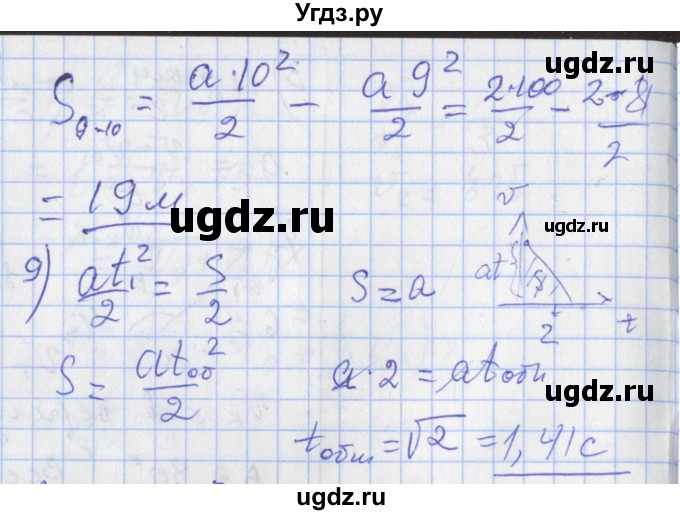 Угдз.ру
ugdz.ru ugdz.ru
S₉₋₁₀ = a·10²/2 − a 9²/2 = 2·100/2 − 2·81/2
= 19 м
ugdz.ru ugdz.ru
v
9) at₁²/2 = S/2 S = a at S₁
2 t
S = at об²/2 a·2 = at общ
ugdz.ru ugdz.ru
t общ = √2 = 1,41 с
ugdz.ru